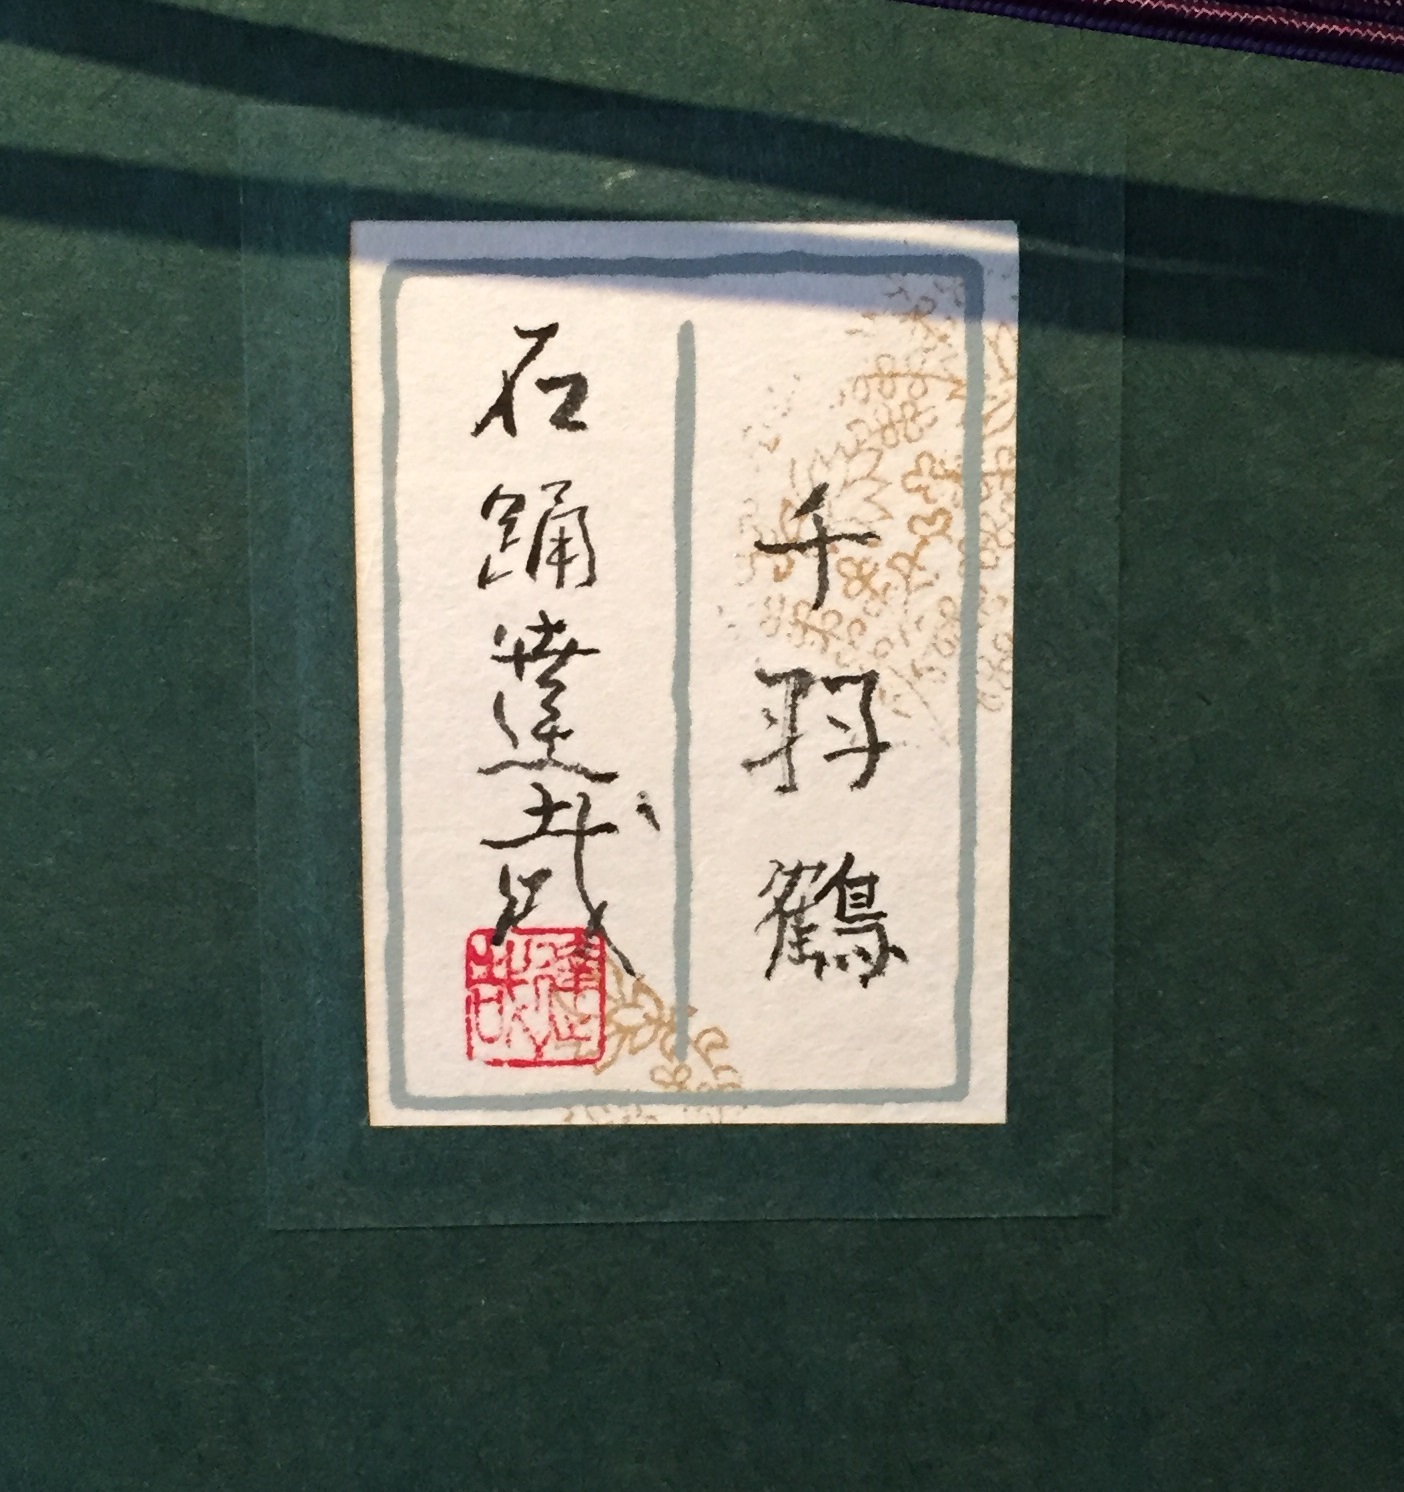 千羽鶴
石踊達哉